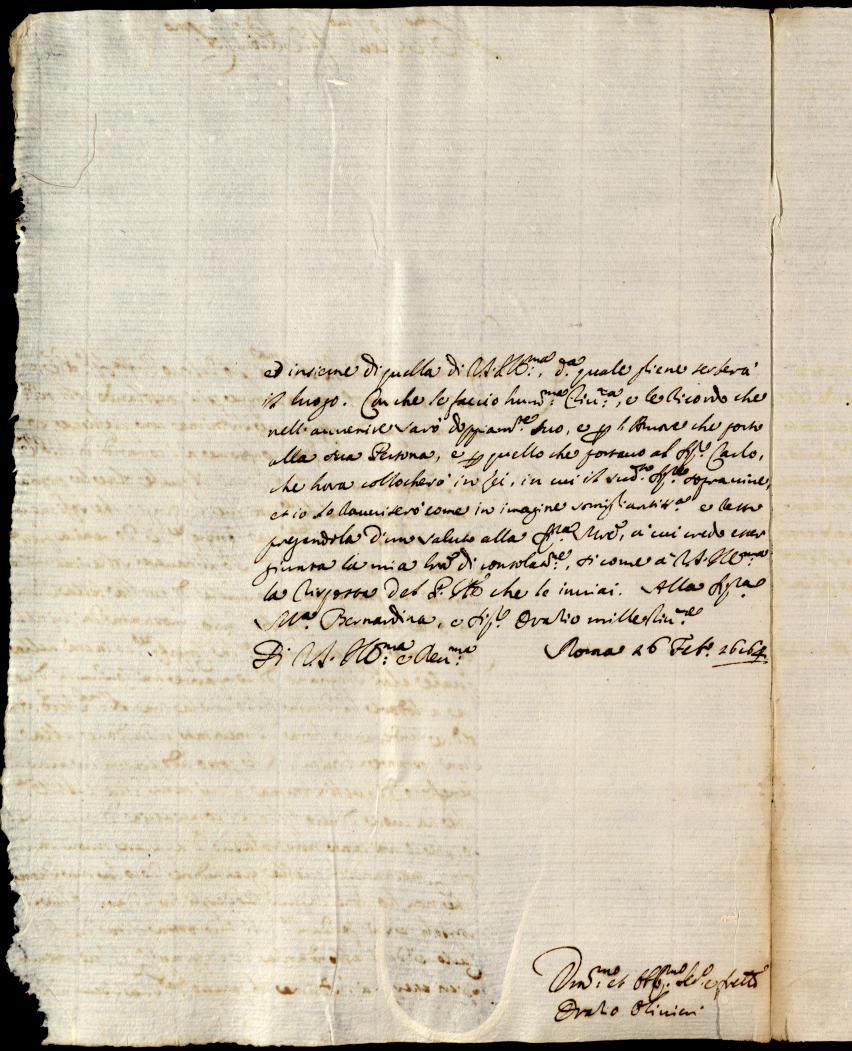 ed insieme di quella di V.S. Ill:ma, d.a quale gliene serberà
il luogo. Con che le faccio hum:me riu:za, e le ricordo che
nell'auuenire sarò doppiam:te suo, e p l'Amore che porto
alla sua Persona, e p quello che portauo al Sig:re Carlo,
che hora collocherò in lei, in cui il sud:o Sig:re soprauiue,
et io lo rauuiserò come in imagine somigliantiss:a e
pregandola d'un saluto alla Sig:ra M.re, a cui credo esser
giunta la mia lra di consolat:ne, si come a V.S. Ill:ma
la risposta del P. che le inuiai. Alla Sig:ra
M.a Bernardina, e Sig:r Oratio mille riu:ze
Di V.S. Ill:ma e Reu:ma Roma 26 Feb:o 1664
Diu:mo et Obl:mo se:re
Oratio Oliuieri